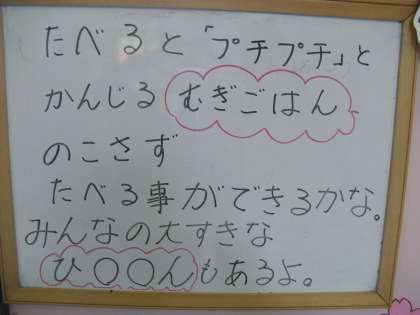 たべると「プチプチ」と
かんじる むぎごはん
のこさず
たべる事ができるかな。
みんなの大すきな
ひ〇〇んもあるよ。